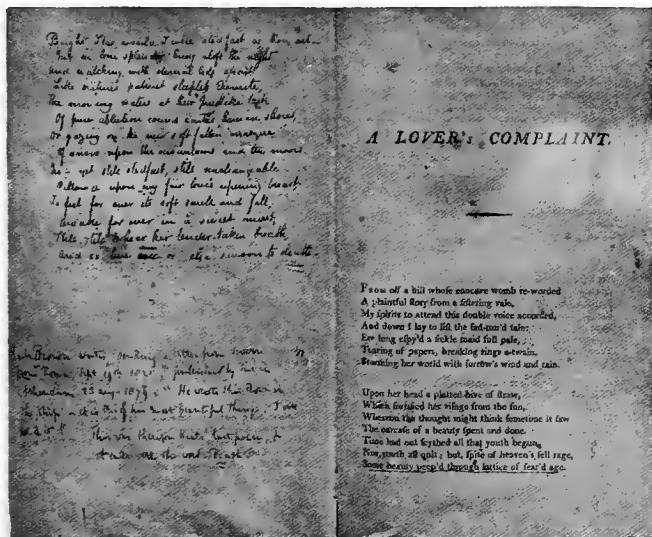 Bright Star, would I were stedfast as thou art—
Not in lone splendor hung aloft the night
And watching, with eternal lids apart
Like nature's patient sleepless Eremite,
The moving waters at their priestlike task
Of pure ablution round earth's human shores,
Or gazing on the new soft fallen masque
Of snow upon the mountains and the moors.
No— yet still stedfast, still unchangeable
Pillow'd upon my fair love's ripening breast
To feel for ever its soft swell and fall,
Awake for ever in a sweet unrest,
Still, still to hear her tender-taken breath
And so live ever or else swoon to death—
Brown writes, a letter from Severn
Sept 19th published by him in
Athenaeum 23 aug. 1879, "He wrote this down in
the ship it is one of his most beautiful things. I
send it"
This was therefore Keats' last poem, &
A LOVER's COMPLAINT.
FROM off a hill whoſe concave womb re-worded
A plaintful ſtory from a ſiſtering vale,
My ſpirits to attend this double voice accorded,
And down I lay to liſt the ſad-tun'd tale:
Ere long eſpy'd a fickle maid full pale,
Tearing of papers, breaking rings a-twain,
Storming her world with ſorrow's wind and rain.
Upon her head a platted hive of ſtraw,
Which fortified her viſage from the ſun,
Whereon the thought might think ſometime it ſaw
The carcaſe of a beauty ſpent and done.
Time had not ſcythed all that youth begun,
Nor youth all quit; but, ſpite of heaven's fell rage,
Some beauty peep'd through lattice of ſear'd age.